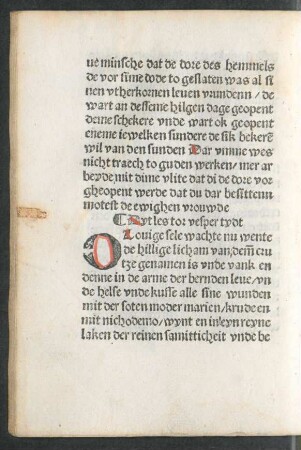 ue minsche dat de dore des hemmels
de vor sime dode to geslaten was al si
nen vtherkornen leuen vrundenn / de
wart an desseme hilgen dage geopent
deme schekere vnde wart ok geopent
eneme iewelken sundere de sik bekerē
wil van den sunden Dar vmme wes
nicht traech to guden werken / mer ar
beyde mit dime vlite dat di de dore vor
gheopent werde dat du dar besittenn
motest de ewighen vrouwde
¶ Dyt les tor vesper tydt
O Louige sele wachte nu wente
de hillige licham van dem cru
tze genamen is vnde vank en
denne in de arme der bernden leue / vn
de helse vnde kusse alle sine wunden
mit der soten moder marien / krude en
mit nichodemo / wynt en in eyn reyne
laken der reinen samitticheit vnde be